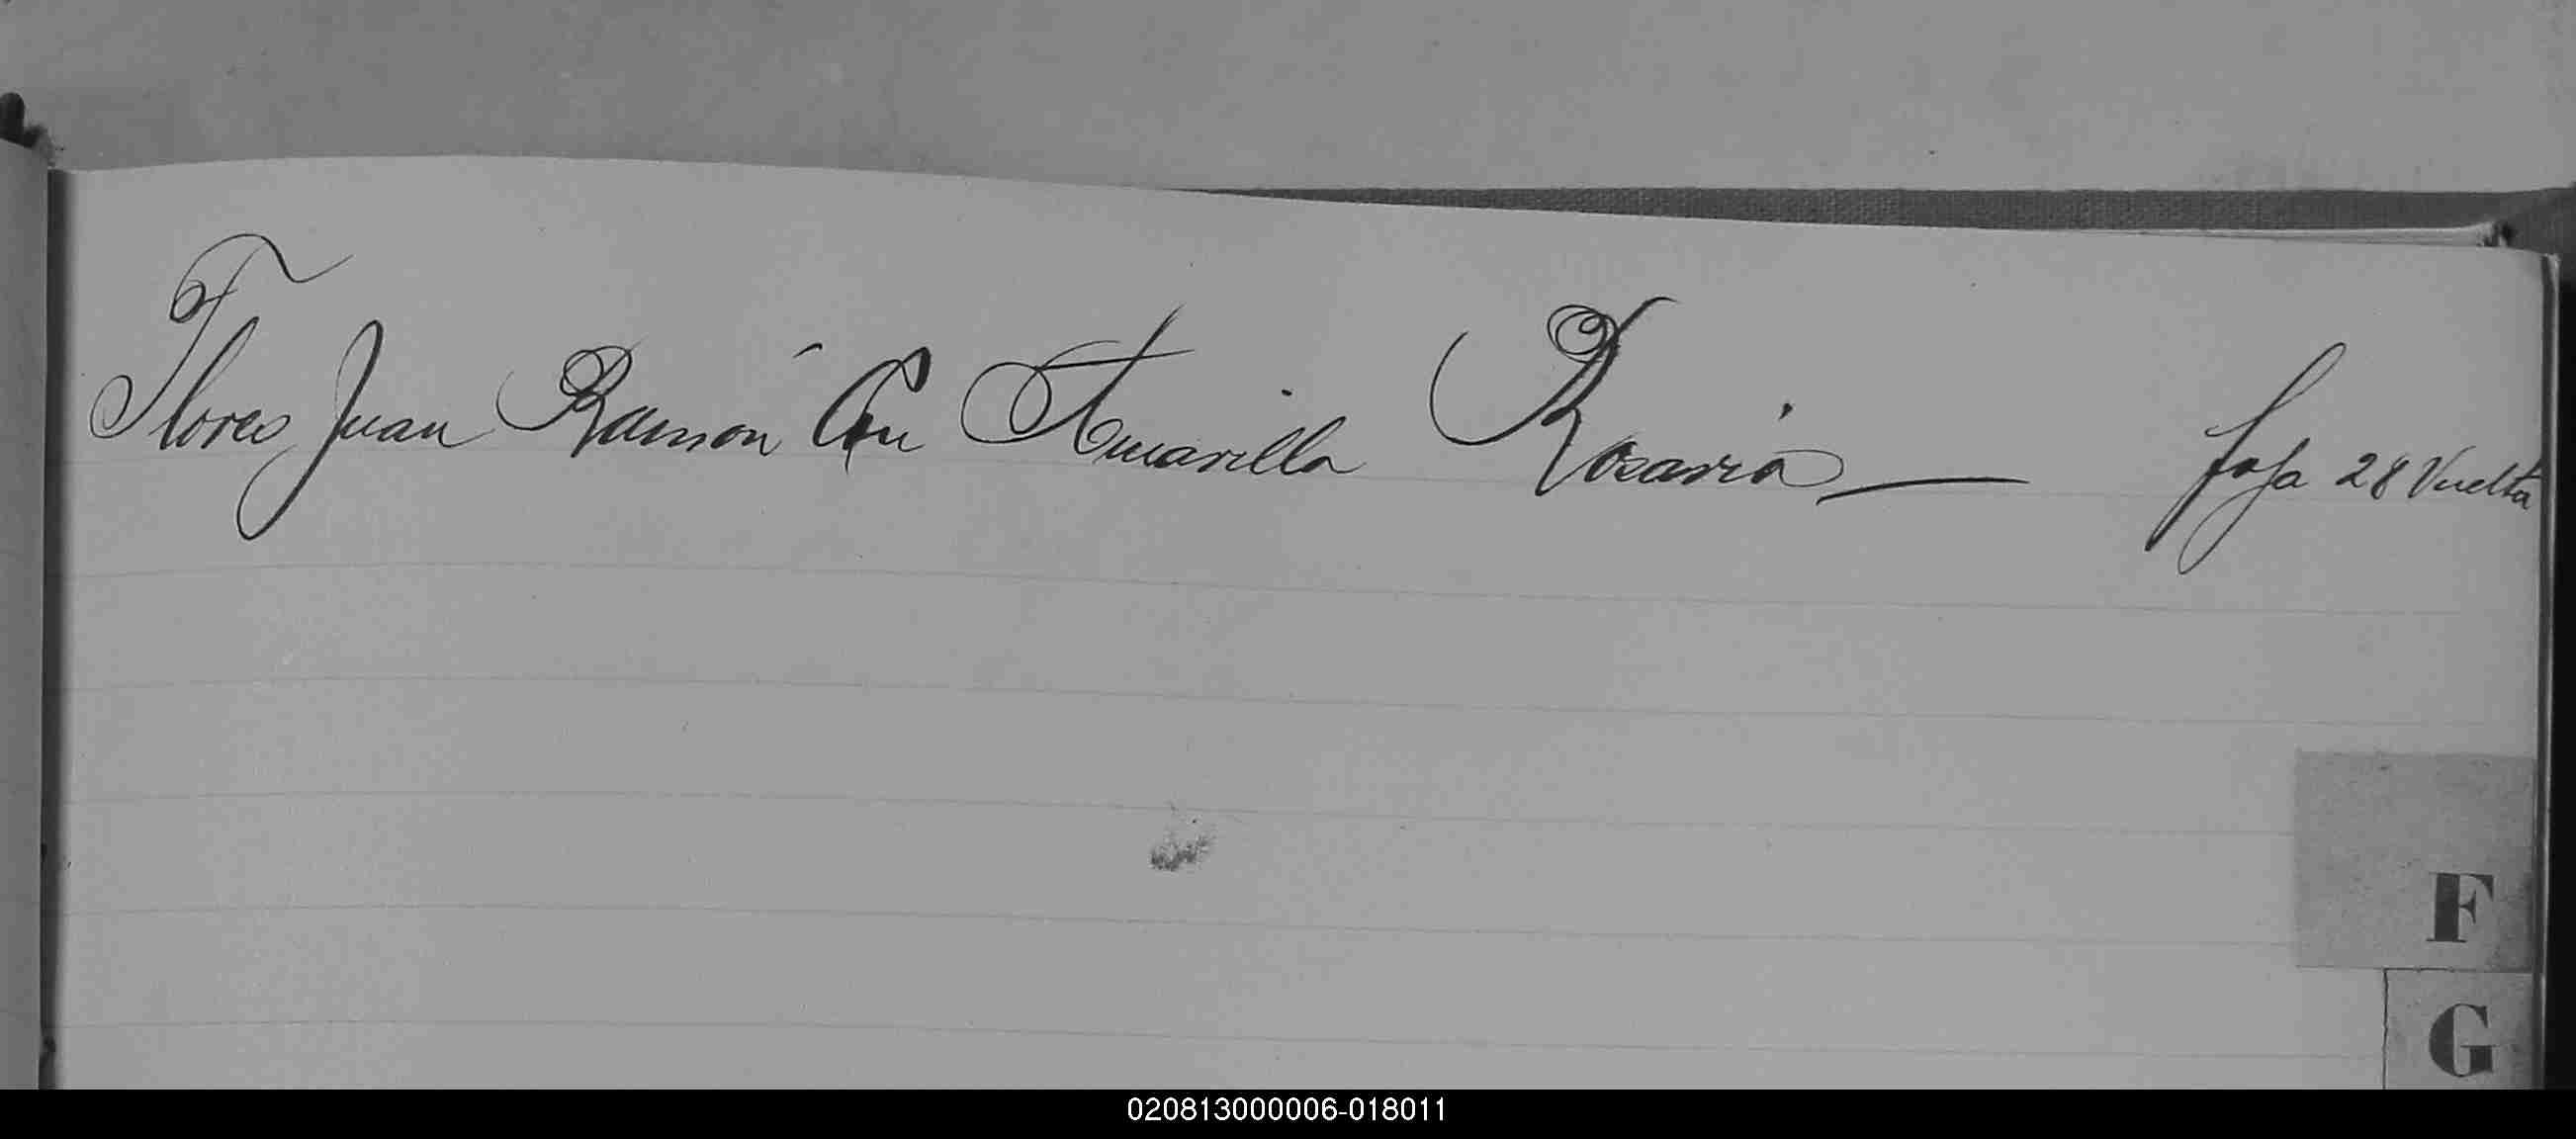 Flores Juan Ramón Con Amarilla Rosario foja 28 Vuelta
F
G
020813000006-018011